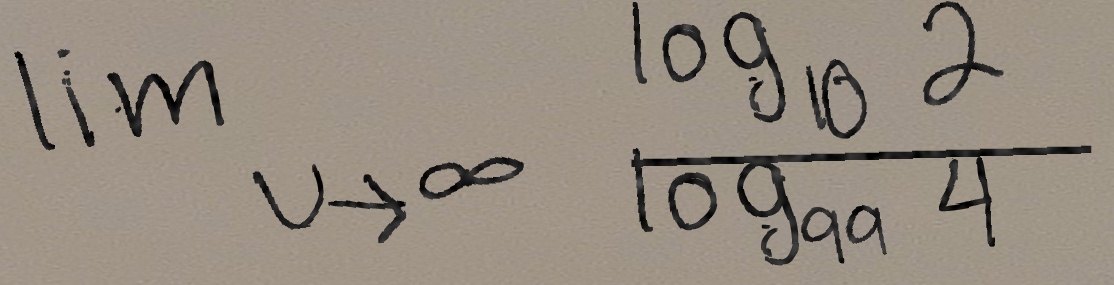 lim v→∞ log₁₀ 2 / log₉₉ 4